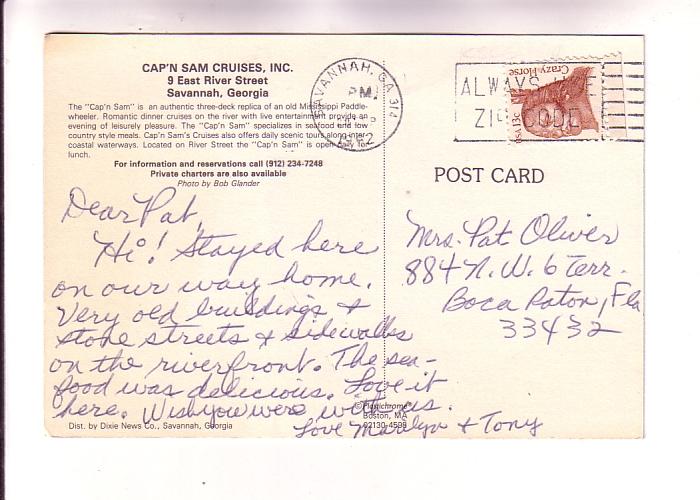 CAP'N SAM CRUISES, INC.
9 East River Street
Savannah, Georgia
The "Cap'n Sam" is an authentic three-deck replica of an old Mississippi Paddle-
wheeler. Romantic dinner cruises on the river with live entertainment provide an
evening of leisurely pleasure. The "Cap'n Sam" specializes in seafood and low
country style meals. Cap'n Sam's Cruises also offers daily scenic tours along inter-
coastal waterways. Located on River Street the "Cap'n Sam" is open daily for
lunch.
For information and reservations call (912) 234-7248
Private charters are also available
Photo by Bob Glander
Dear Pat,
Hi! Stayed here
on our way home.
Very old buildings +
stone streets & sidewalks
on the riverfront. The sea-
food was delicious. Love it
here. Wish you were with us.
Love Marilyn + Tony
Dist. by Dixie News Co., Savannah, Georgia
©Plastichrome®
Boston, MA
02130-4599
SAVANNAH, GA 314
PM
1982
ALWAYS USE
ZIP CODE
Crazy Horse
USA 13c
POST CARD
Mrs. Pat Oliver
884 N.W. 6 Terr.
Boca Raton, Fla
33432